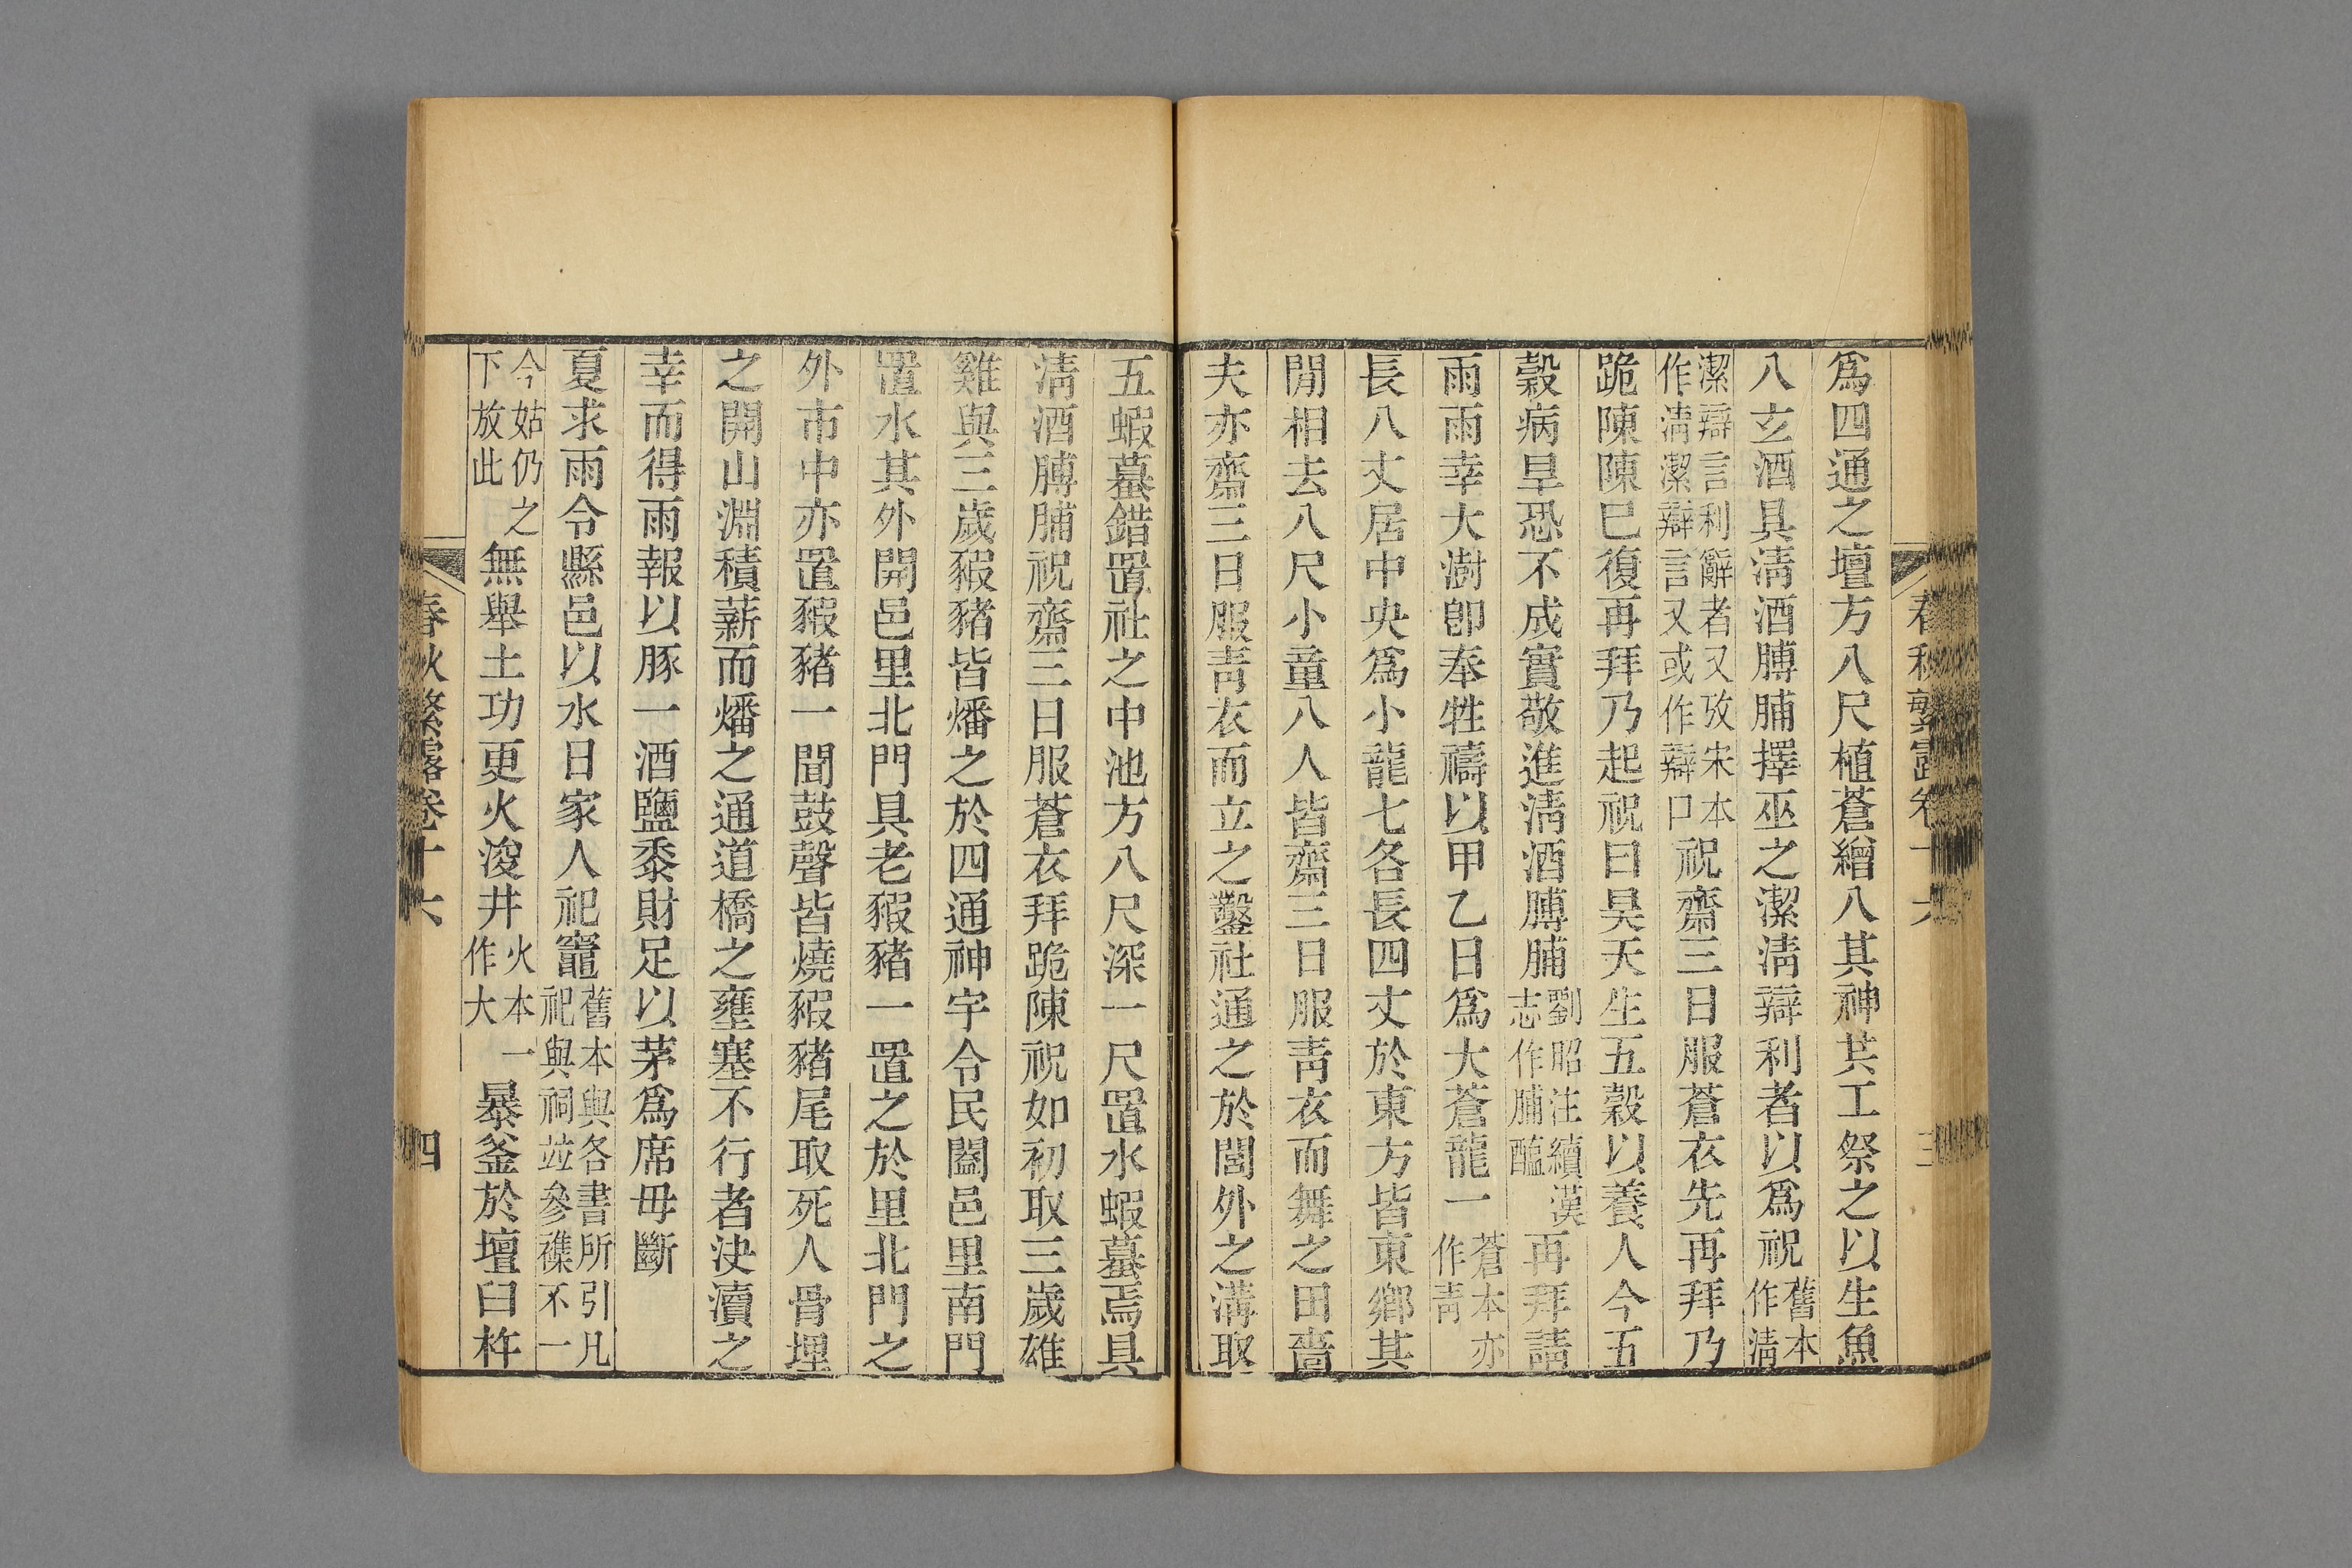 春秋繁露卷十六
三
爲四通之壇方八尺植蒼繒八其神共工祭之以生魚
八玄酒具淸酒膊脯擇巫之潔淸辯利者以爲祝舊本作淸
潔辯言利辭者又攷宋本作淸潔辯言又或作辯口祝齋三日服蒼衣先再拜乃
跪陳陳已復再拜乃起祝曰昊天生五穀以養人今五
穀病旱恐不成實敬進淸酒膊脯劉昭注續漢志作脯醢再拜請
雨雨幸大澍卽奉牲禱以甲乙日爲大蒼龍一蒼本亦作靑
長八丈居中央爲小龍七各長四丈於東方皆東鄉其
閒相去八尺小童八人皆齋三日服靑衣而舞之田嗇
夫亦齋三日服靑衣而立之鑿社通之於閭外之溝取
五蝦蟇錯置社之中池方八尺深一尺置水蝦蟇焉具
淸酒膊脯祝齋三日服蒼衣拜跪陳祝如初取三歲雄
雞與三歲豭豬皆燔之於四通神宇令民闔邑里南門
置水其外開邑里北門具老豭豬一置之於里北門之
外市中亦置豭豬一聞鼓聲皆燒豭豬尾取死人骨埋
之開山淵積薪而燔之通道橋之壅塞不行者決瀆之
幸而得雨報以豚一酒鹽黍財足以茅爲席毋斷
夏求雨令縣邑以水日家人祀竈舊本與各書所引凡祀與祠竝參襍不一
今姑仍之下放此無舉土功更火浚井火本一作大暴釜於壇臼杵
春秋繁露卷十六
四